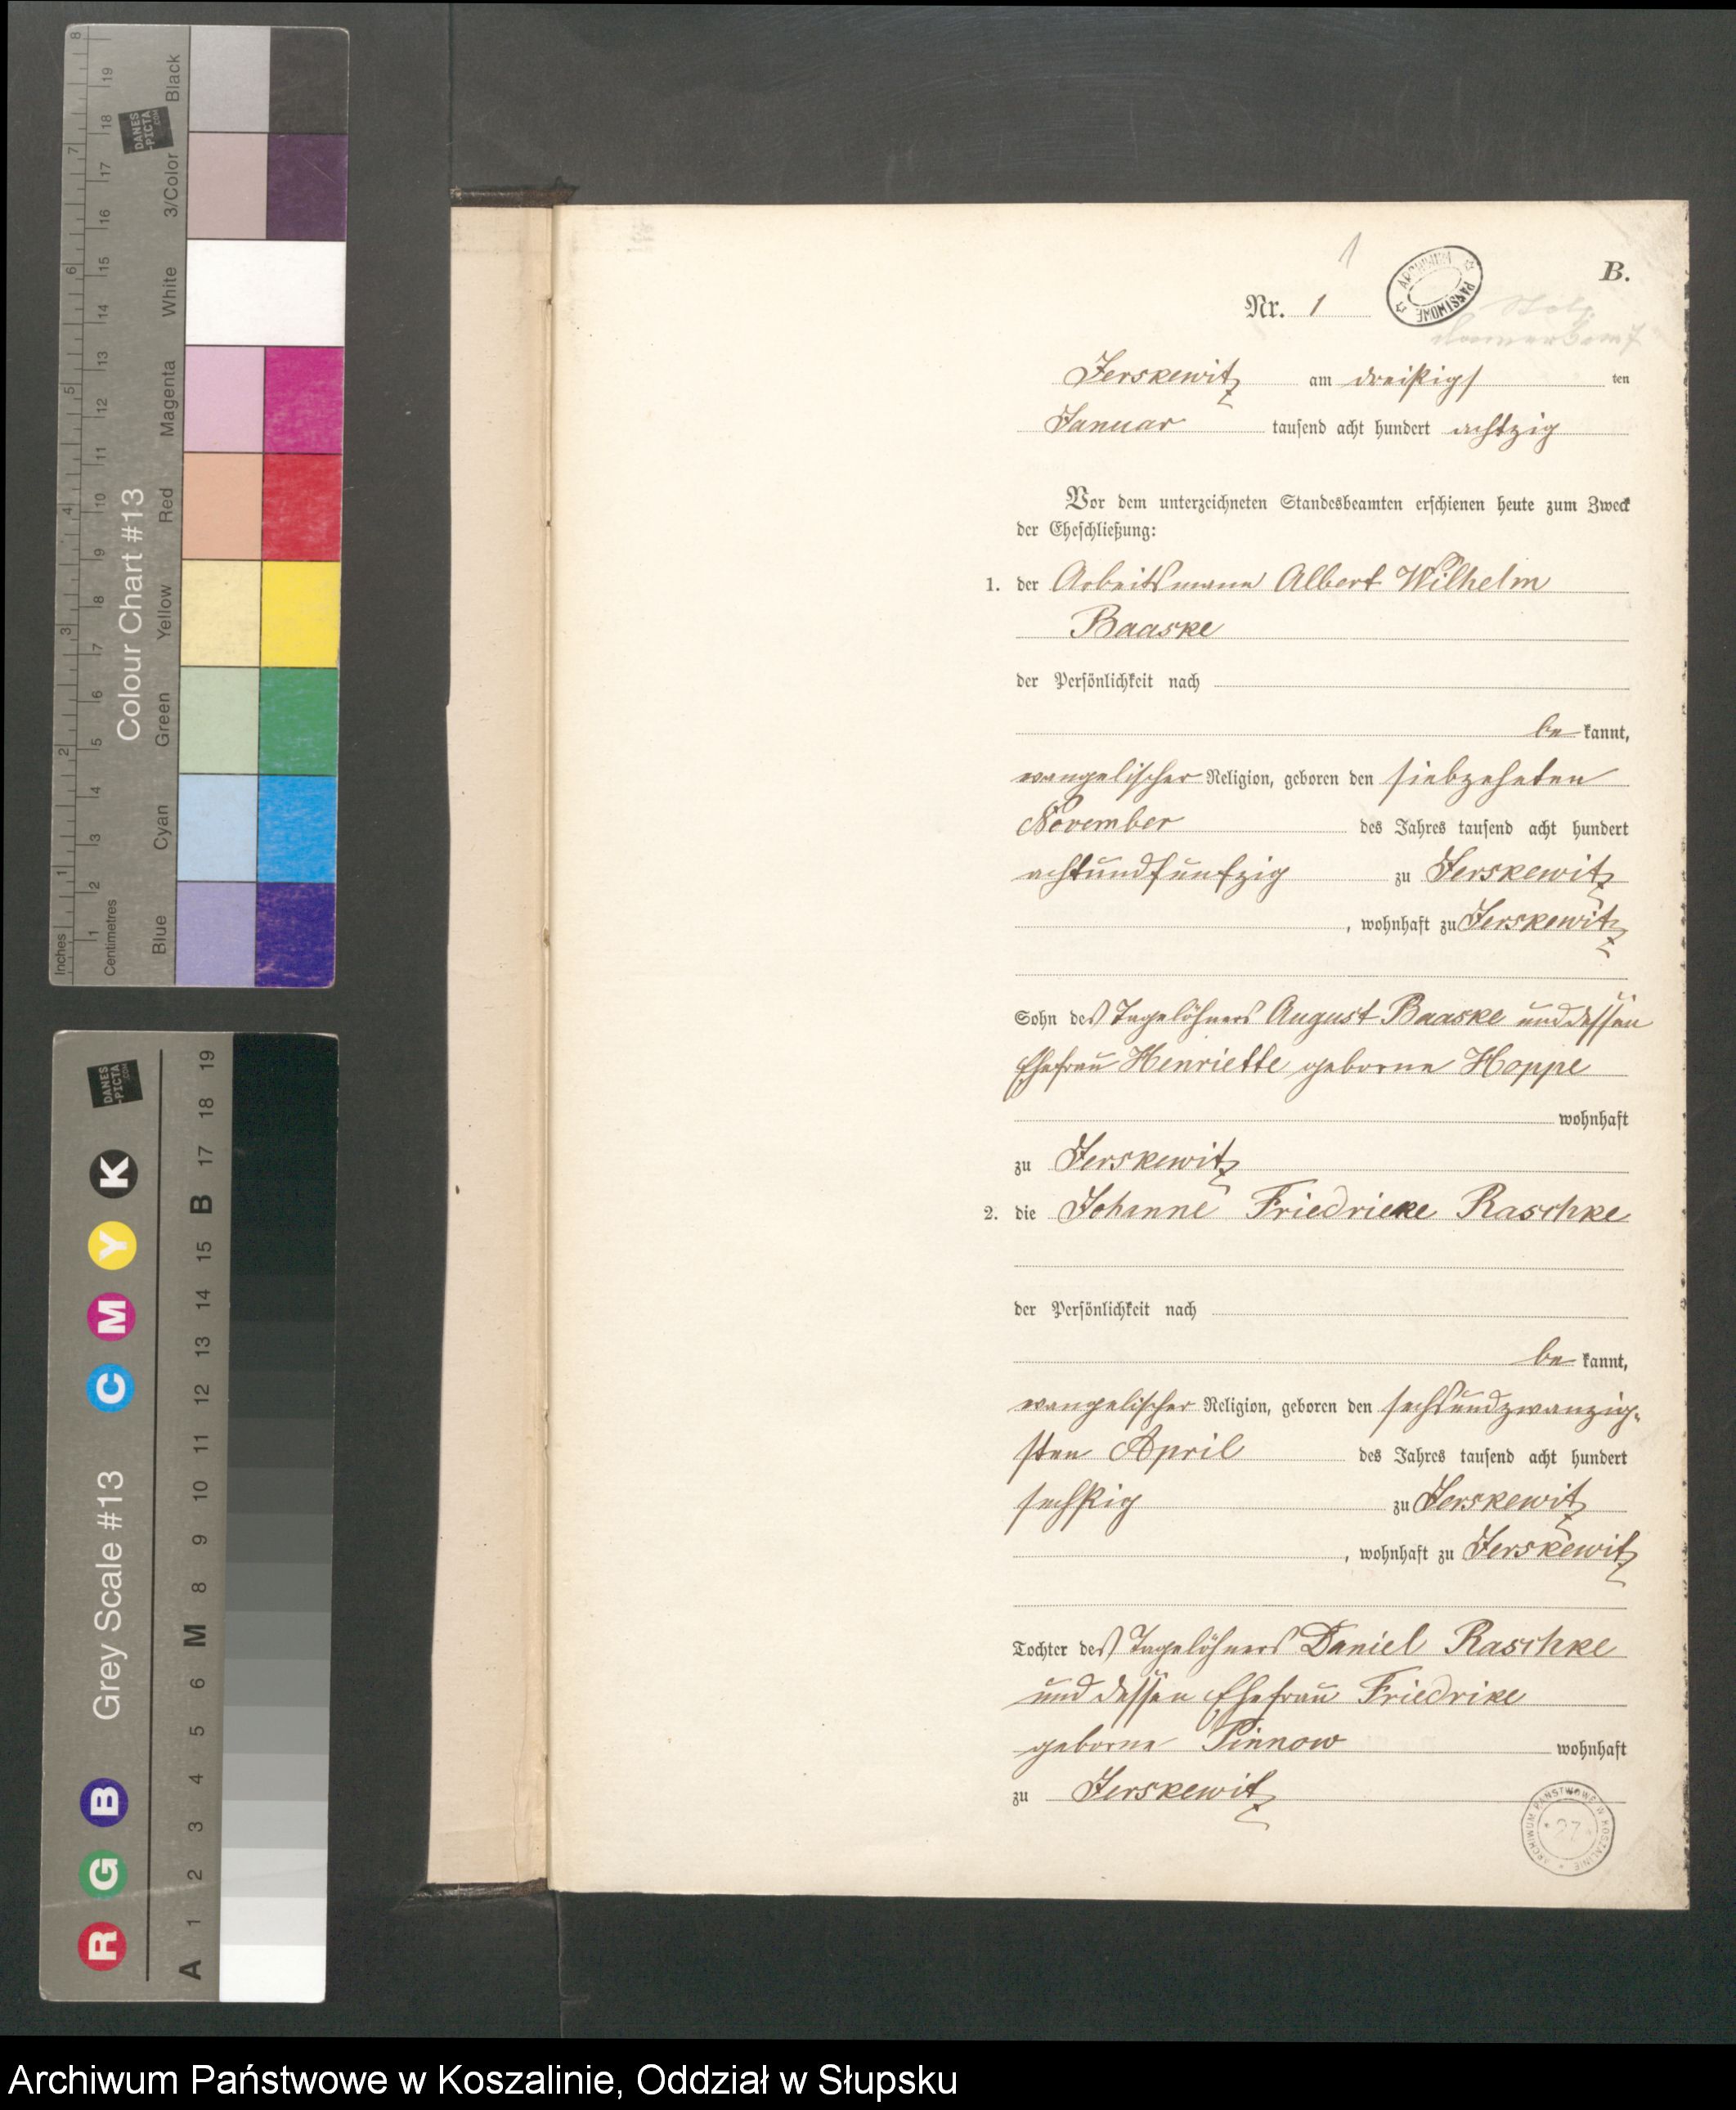 8
7
6
5
4
3
2
1
Inches
19
18
17
16
15
14
13
12
11
10
9
8
7
6
5
4
3
2
1
Centimetres
DANES
-PICTA
.COM
Colour Chart #13
Black
3/Color
White
Magenta
Red
Yellow
Green
Cyan
Blue
DANES
-PICTA
.COM
K
Y
M
C
Grey Scale #13
B
G
R
19
18
17
B
15
14
13
12
11
10
9
8
M
6
5
4
3
2
1
A
1
B.
Nr. 1
ARCHIWUM PAŃSTWOWE
Jerskewitz am dreißigsten
Januar tausend acht hundert achtzig
Vor dem unterzeichneten Standesbeamten erschienen heute zum Zweck
der Eheschließung:
1. der Arbeitsmann Albert Wilhelm
Baaske
der Persönlichkeit nach
be kannt,
evangelischer Religion, geboren den siebzehnten
November des Jahres tausend acht hundert
achtundfunfzig zu Jerskewitz
, wohnhaft zu Jerskewitz
Sohn des Tagelöhners August Baaske und dessen
Ehefrau Henriette geborne Hoppe
wohnhaft
zu Jerskewitz
2. die Johanne Friedrieke Raschke
der Persönlichkeit nach
be kannt,
evangelischer Religion, geboren den sechsundzwanzig-
sten April des Jahres tausend acht hundert
sechszig zu Jerskewitz
, wohnhaft zu Jerskewitz
Tochter des Tagelöhners Daniel Raschke
und dessen Ehefrau Friedrike
geborne Pinnow wohnhaft
zu Jerskewitz
ARCHIWUM PAŃSTWOWE W KOSZALINIE
27
Archiwum Państwowe w Koszalinie, Oddział w Słupsku